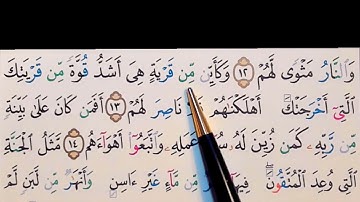 وَالنَّارُ مَثْوًى لَّهُمْ ١٢ وَكَأَيِّن مِّن قَرْيَةٍ هِيَ أَشَدُّ قُوَّةً مِّن قَرْيَتِكَ
الَّتِي أَخْرَجَتْكَ أَهْلَكْنَاهُمْ نَاصِرَ لَهُمْ ١٣ أَفَمَن كَانَ عَلَىٰ بَيِّنَةٍ
مِّن رَّبِّهِ كَمَن زُيِّنَ لَهُ عَمَلِهِ وَاتَّبَعُوا أَهْوَاءَهُم ١٤ مَّثَلُ الْجَنَّةِ
الَّتِي وُعِدَ الْمُتَّقُونَ مِّن مَّاءٍ غَيْرِ آسِنٍ وَأَنْهَارٌ مِّن لَّبَنٍ لَّمْ